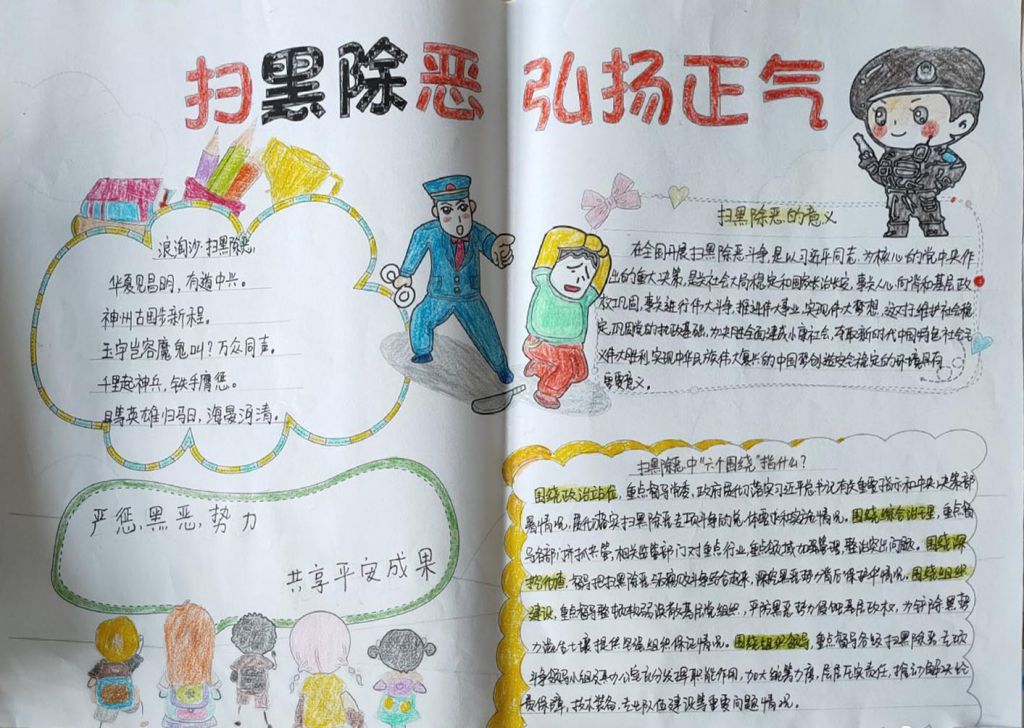 扫黑除恶 弘扬正气
浪淘沙·扫黑除恶
华夏见昌明，有道中兴。
神州古国步新程。
玉宇岂容魔鬼叫？万众同声。
千里起神兵，铁手鹰
英雄归马日，海晏河清。
严惩,黑恶,势力
共享平安成果
扫黑除恶的意义
在全国开展扫黑除恶斗争是以习近平同志为核心的党中央作
出的重大决策，是关社会大局稳定和国家长治久安，事关人心向背和基层政
权巩固，事关进行伟大斗争，推进伟大事业，实现伟大梦想，这对维护社会稳
定，巩固党的执政基础，为决胜全面建成小康社会，夺取新时代中国特色社会主
义伟大胜利实现中华民族伟大复兴的中国梦创造安全稳定的环境具有
重要意义。
扫黑除恶中“六个围绕”指什么？
围绕政治站位，重点督导党委，政府是否贯彻落实习近平总书记有关重要指示和中央决策部
署情况，扫黑除恶专项斗争 情况。围绕综合治理，重点督
导各部门齐抓共管，相关监管部门对重点行业，重点领域加强管理，整治突出问题。围绕深
挖彻查，督导把扫黑除恶与 结合起来，深挖黑恶势力背后“保护伞”情况。围绕组织
建设，重点督导整顿软弱涣散基层党组织，严防黑恶势力侵蚀基层政权，为铲除黑恶势
力滋生土壤提供坚强组织保证情况。围绕组织领导，重点督导各级扫黑除恶专项
斗争领导小组及办公室充分发挥职能作用，加大统筹力度，层层压实责任，推动解决经
费保障，技术装备，专业队伍建设等重要问题情况。